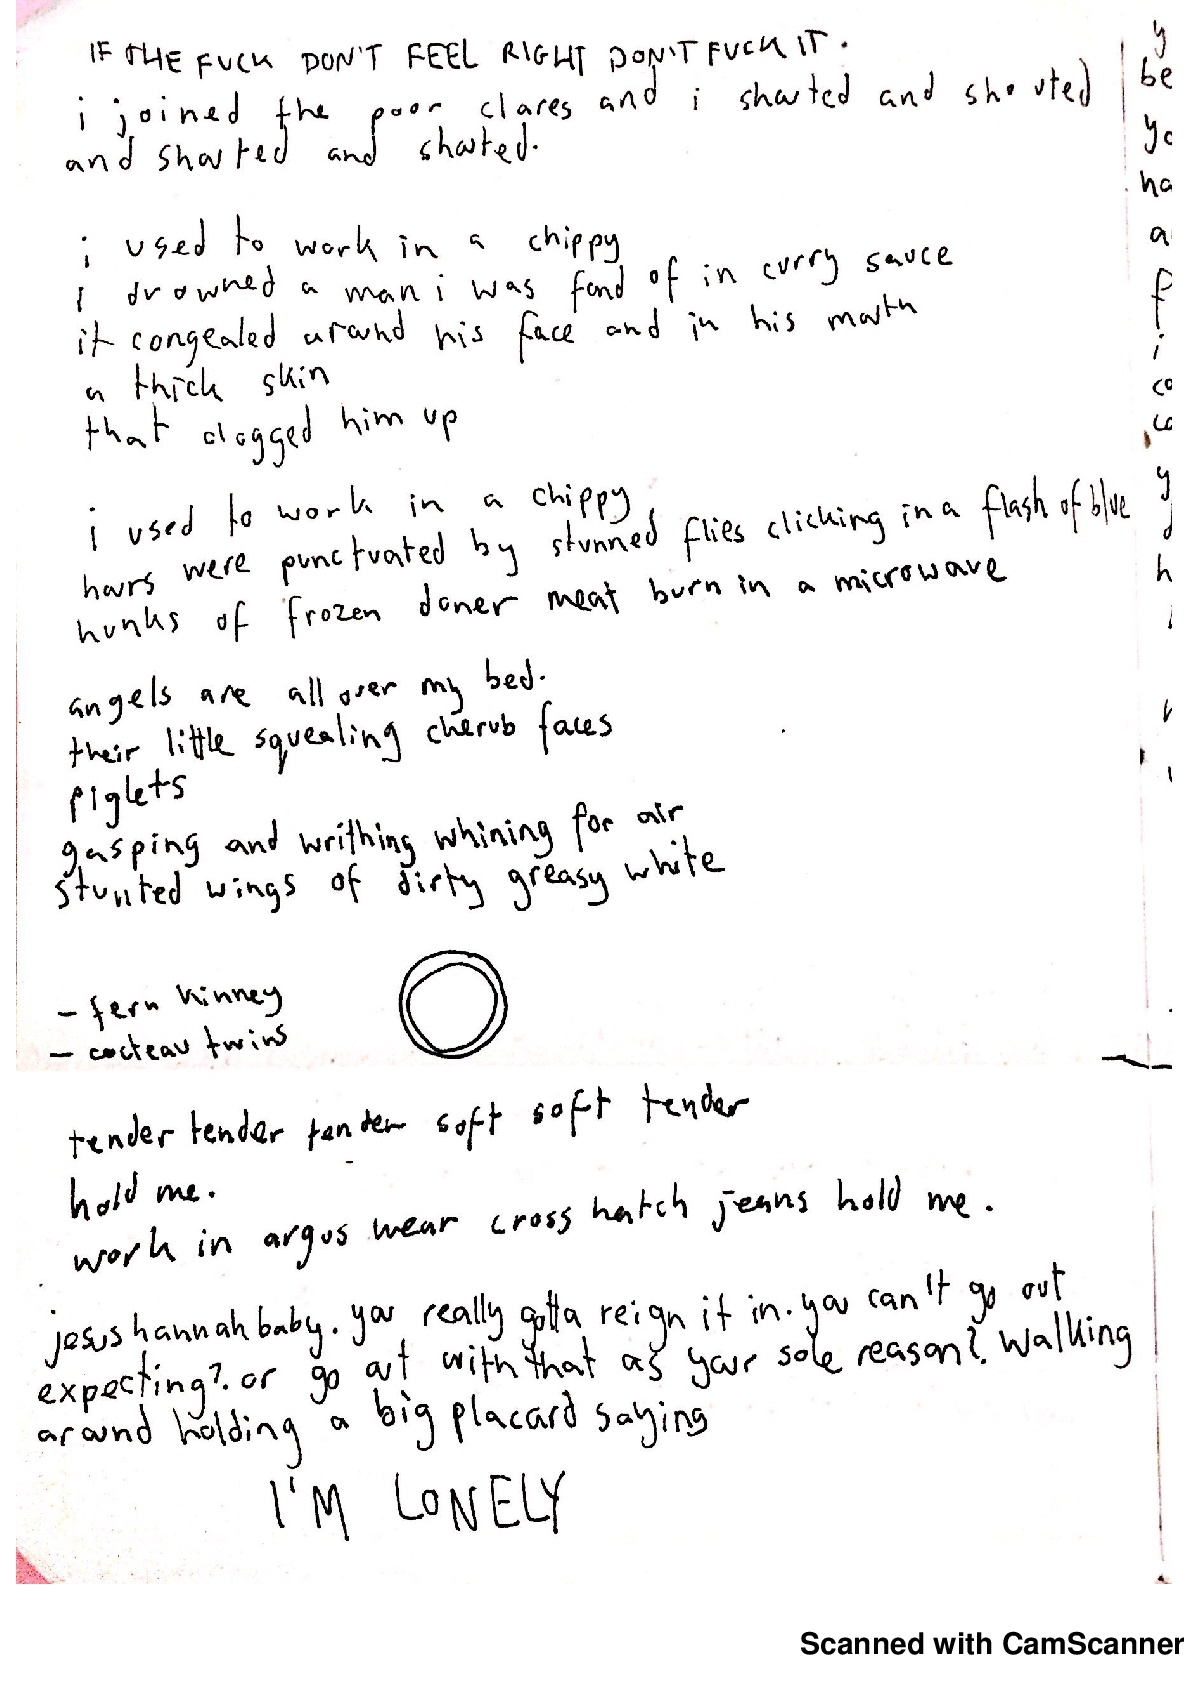 IF THE FUCK DON'T FEEL RIGHT DON'T FUCK IT.
i joined the poor clares and i shouted and shouted
and shouted and shouted.
i used to work in a chippy
i drowned a man i was fond of in curry sauce
it congealed around his face and in his mouth
a thick skin
that clogged him up
i used to work in a chippy
hours were punctuated by stunned flies clicking in a flash of blue
hunks of frozen doner meat burn in a microwave
angels are all over my bed.
their little squealing cherub faces
piglets
gasping and writhing whining for air
stunted wings of dirty greasy white
- fern kinney
- cocteau twins
tender tender tender soft soft tender
hold me.
work in argos wear cross hatch jeans hold me.
jesus hannah baby. you really gotta reign it in. you can't go out
expecting?. or go out with that as your sole reason?. walking
around holding a big placard saying
I'M LONELY
y
be
yo
ha
a
f
i
co
co
y
h
Scanned with CamScanner